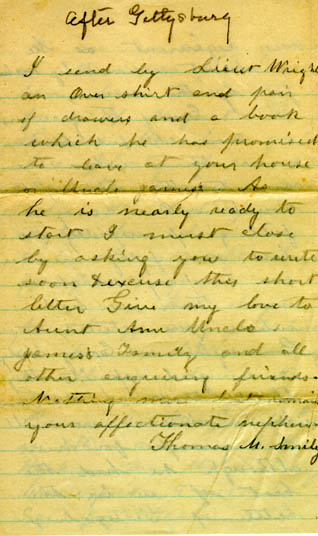 After Gettysburg
I send by Lieut Wright
an over shirt and pair
of drawers and a book
which he has promised
to leave at your house
or Uncle James. As
he is nearly ready to
start I must close
by asking you to write
soon & excuse this short
letter Give my love to
Aunt Ann Uncle
James's Family and all
other enquiring friends.
Nothing more but remain
your affectionate nephew
Thomas M. Smiley